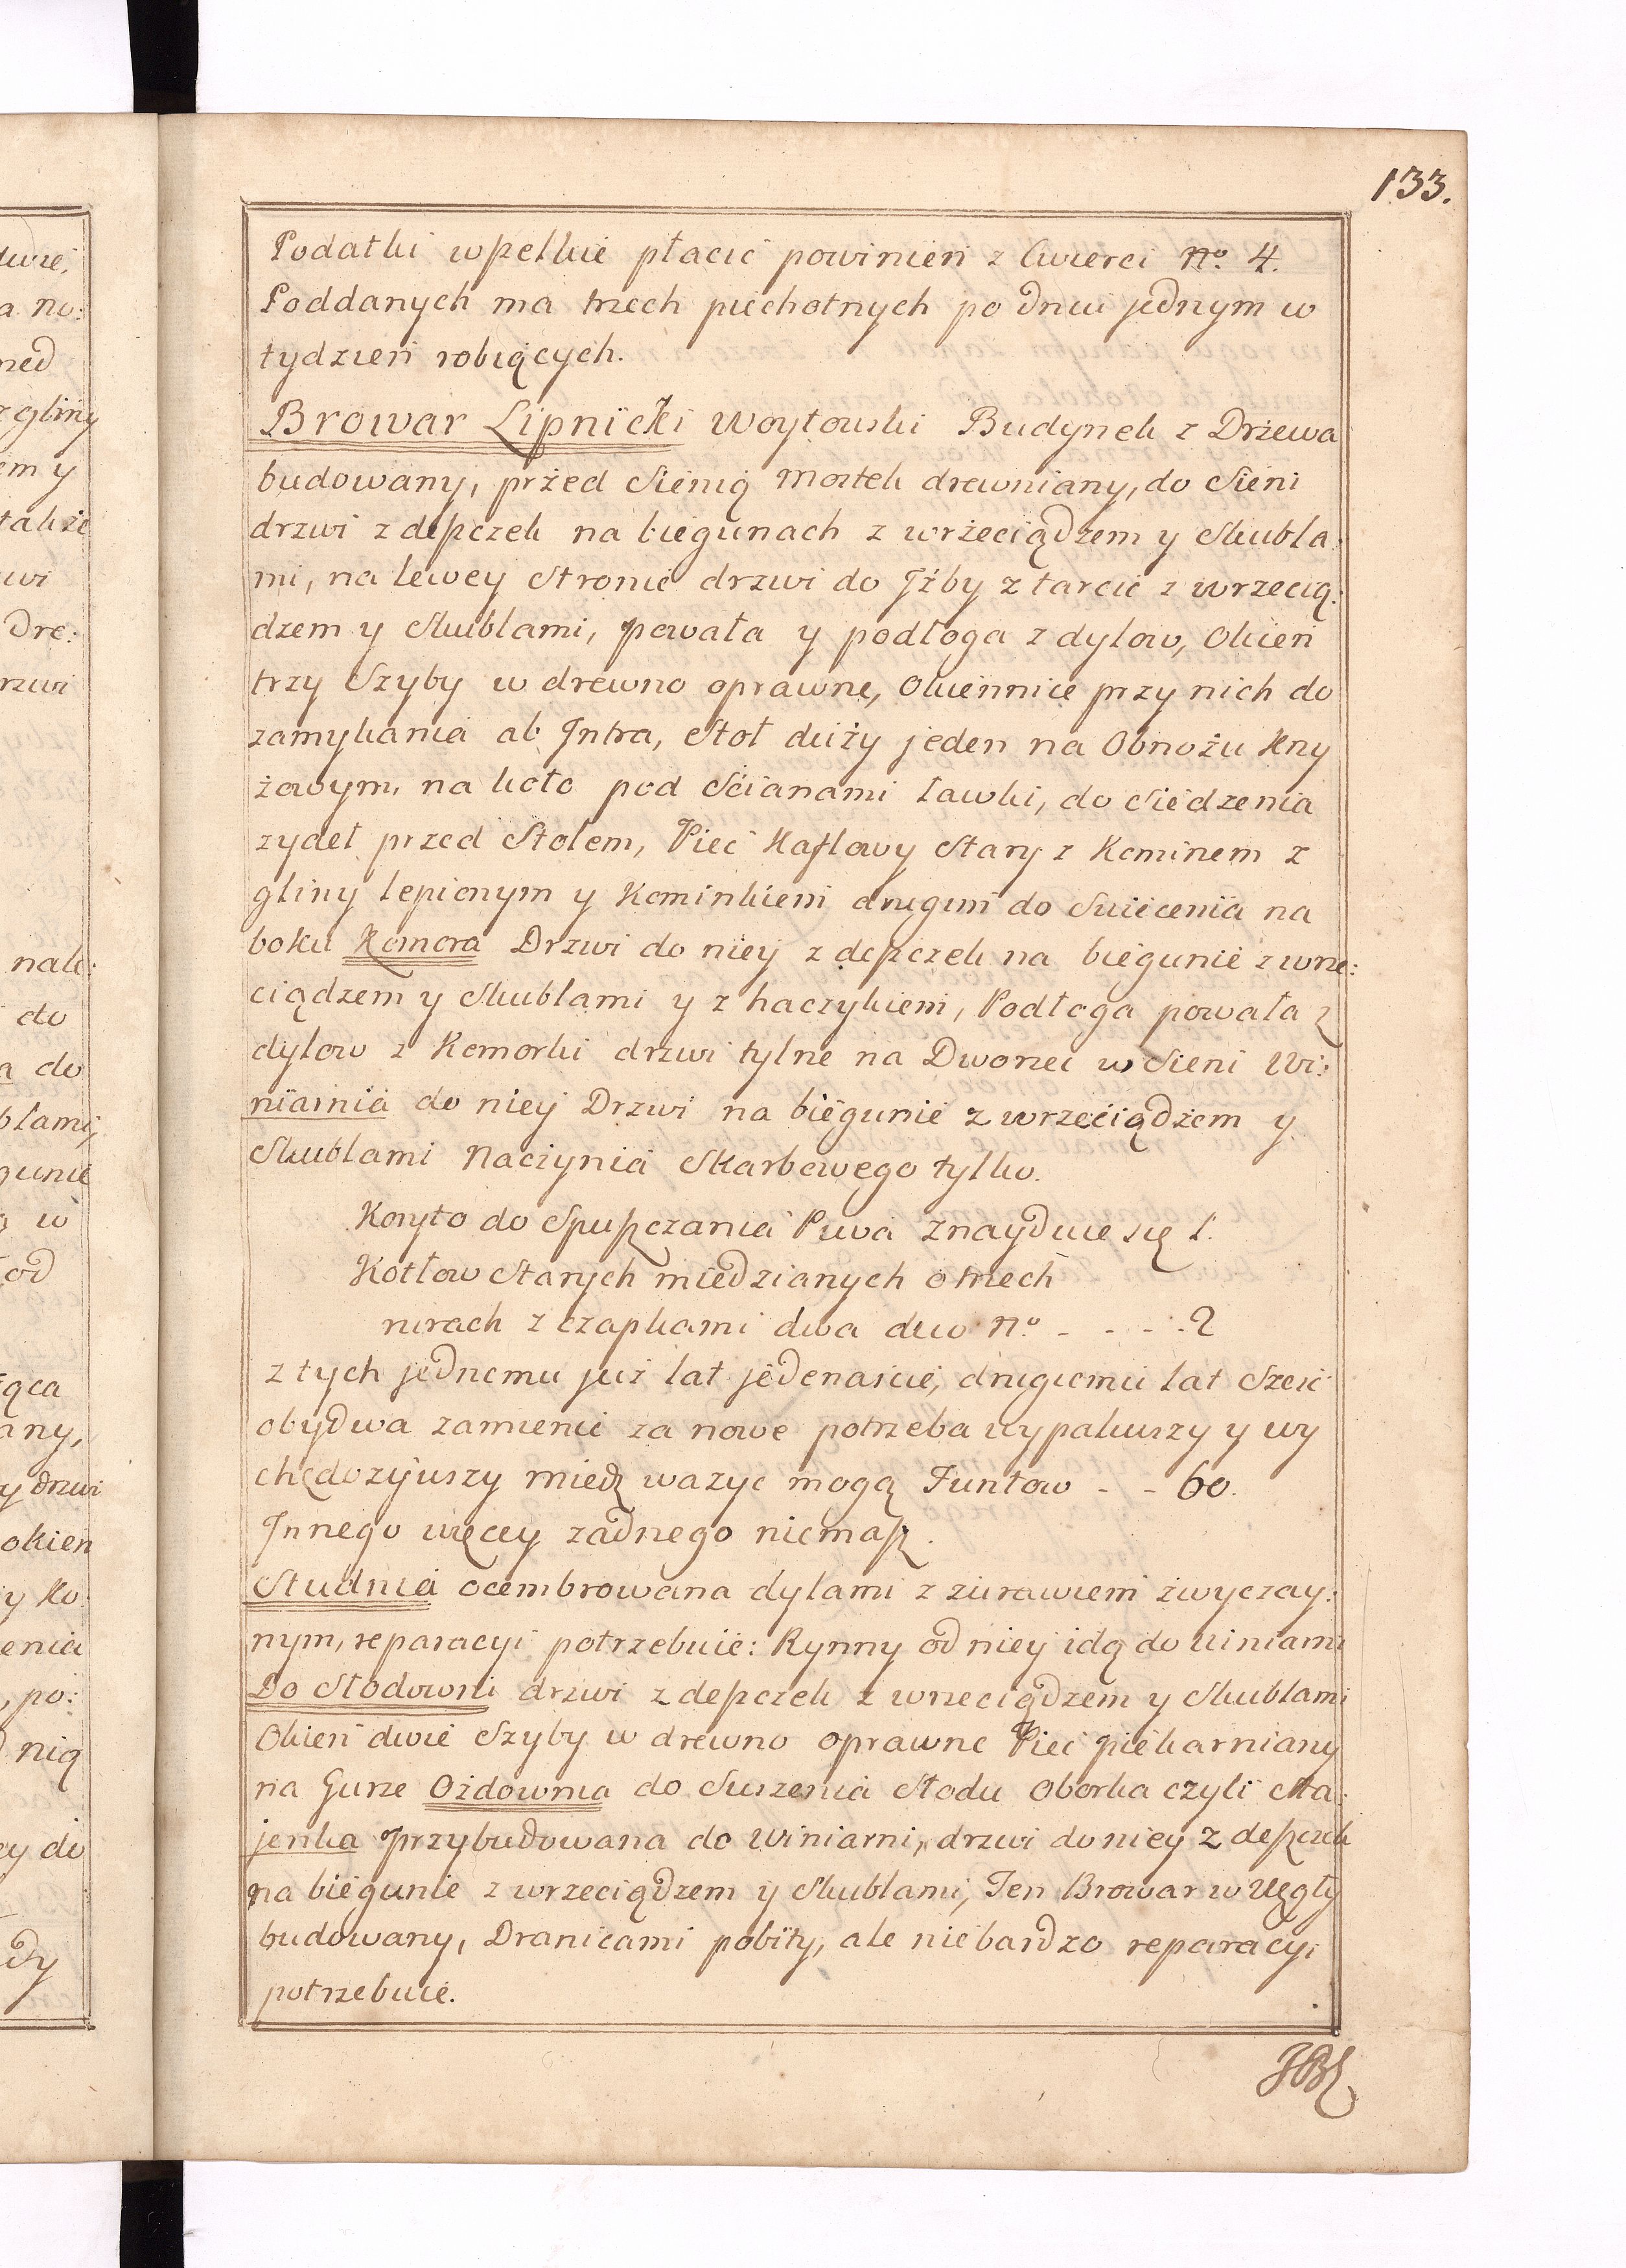 133.
dwie,
a no:
ned
z gliny
em y
także
wi
dre:
rzwi
nale:
do
a do
blami,
gunie
w
od
ąca
any,
y drzwi
okien
y Ko:
enia
, po:
nią
ey do
dy
Podatki wszelkie płacić powinień z Cwierci No. 4.
Poddanych ma trzech piechotnych po dniu jednym w
tydzień robiących.
Browar Lipnicki Woytowski Budynek z Drzewa
budowany, przed Sienią Mostek drewniany, do Sieni
drzwi z deszczek na biegunach z wrzeciądzem y Skubla:
mi, na lewey Stronie drzwi do Jzby z tarcic z wrzecią:
dzem y Skublami, powała y podłoga z dylow, Okien
trzy Szyby w drewno oprawne, Okiennice przy nich do
zamykania ab Jntra, Stoł duży jeden na Obnożu Krzy
żowym, na koło pod Scianami ławki, do Siedzenia
zydel przed Stolem, Piec Kaflowy Stary z Kominem z
gliny lepionym y Kominkiem drugim do Swiecenia na
boku Komora Drzwi do niey z deszczek na biegunie z wrze:
ciądzem y Skublami y z haczykiem, Podłoga powała z
dylow z Komorki drzwi tylne na Dworzec w Sieni Wi:
niarnia do niey Drzwi na biegunie z wrzeciądzem y
Skublami Naczynia Skarbowego tylko.
Koryto do Spuszczania Piwa znayduie się 1.
Kotłow Starych miedzianych o trzech
rurach z czapkami dwa duo No. - - - - 2
z tych jednemu już lat jedenascie, drugiemu lat Szesc
obydwa zamienic za nowe potrzeba wypaliwszy y wy
chędozywszy miedz wazyc mogą Funtow - - 60.
Jnnego więcey zadnego niemasz.
Studnia ocembrowana dylami z zurawiem zwyczay:
nym, reparacyi potrzebuie: Rynny od niey idą do Winiarni
Do Słodowni drzwi z deszczek z wrzeciądzem y Skublami
Okien dwie Szyby w drewno oprawne Piec piekarniany
na Gurze Ozdownia do Suszenia Słodu Oborka czyli Sta:
jenka Przybudowana do Winiarni, drzwi do niey z deszczek
na biegunie z wrzeciądzem y Skublami, Ten Browar w Węgły
budowany, Dranicami pobity, ale niebardzo reparacyi
potrzebuie.